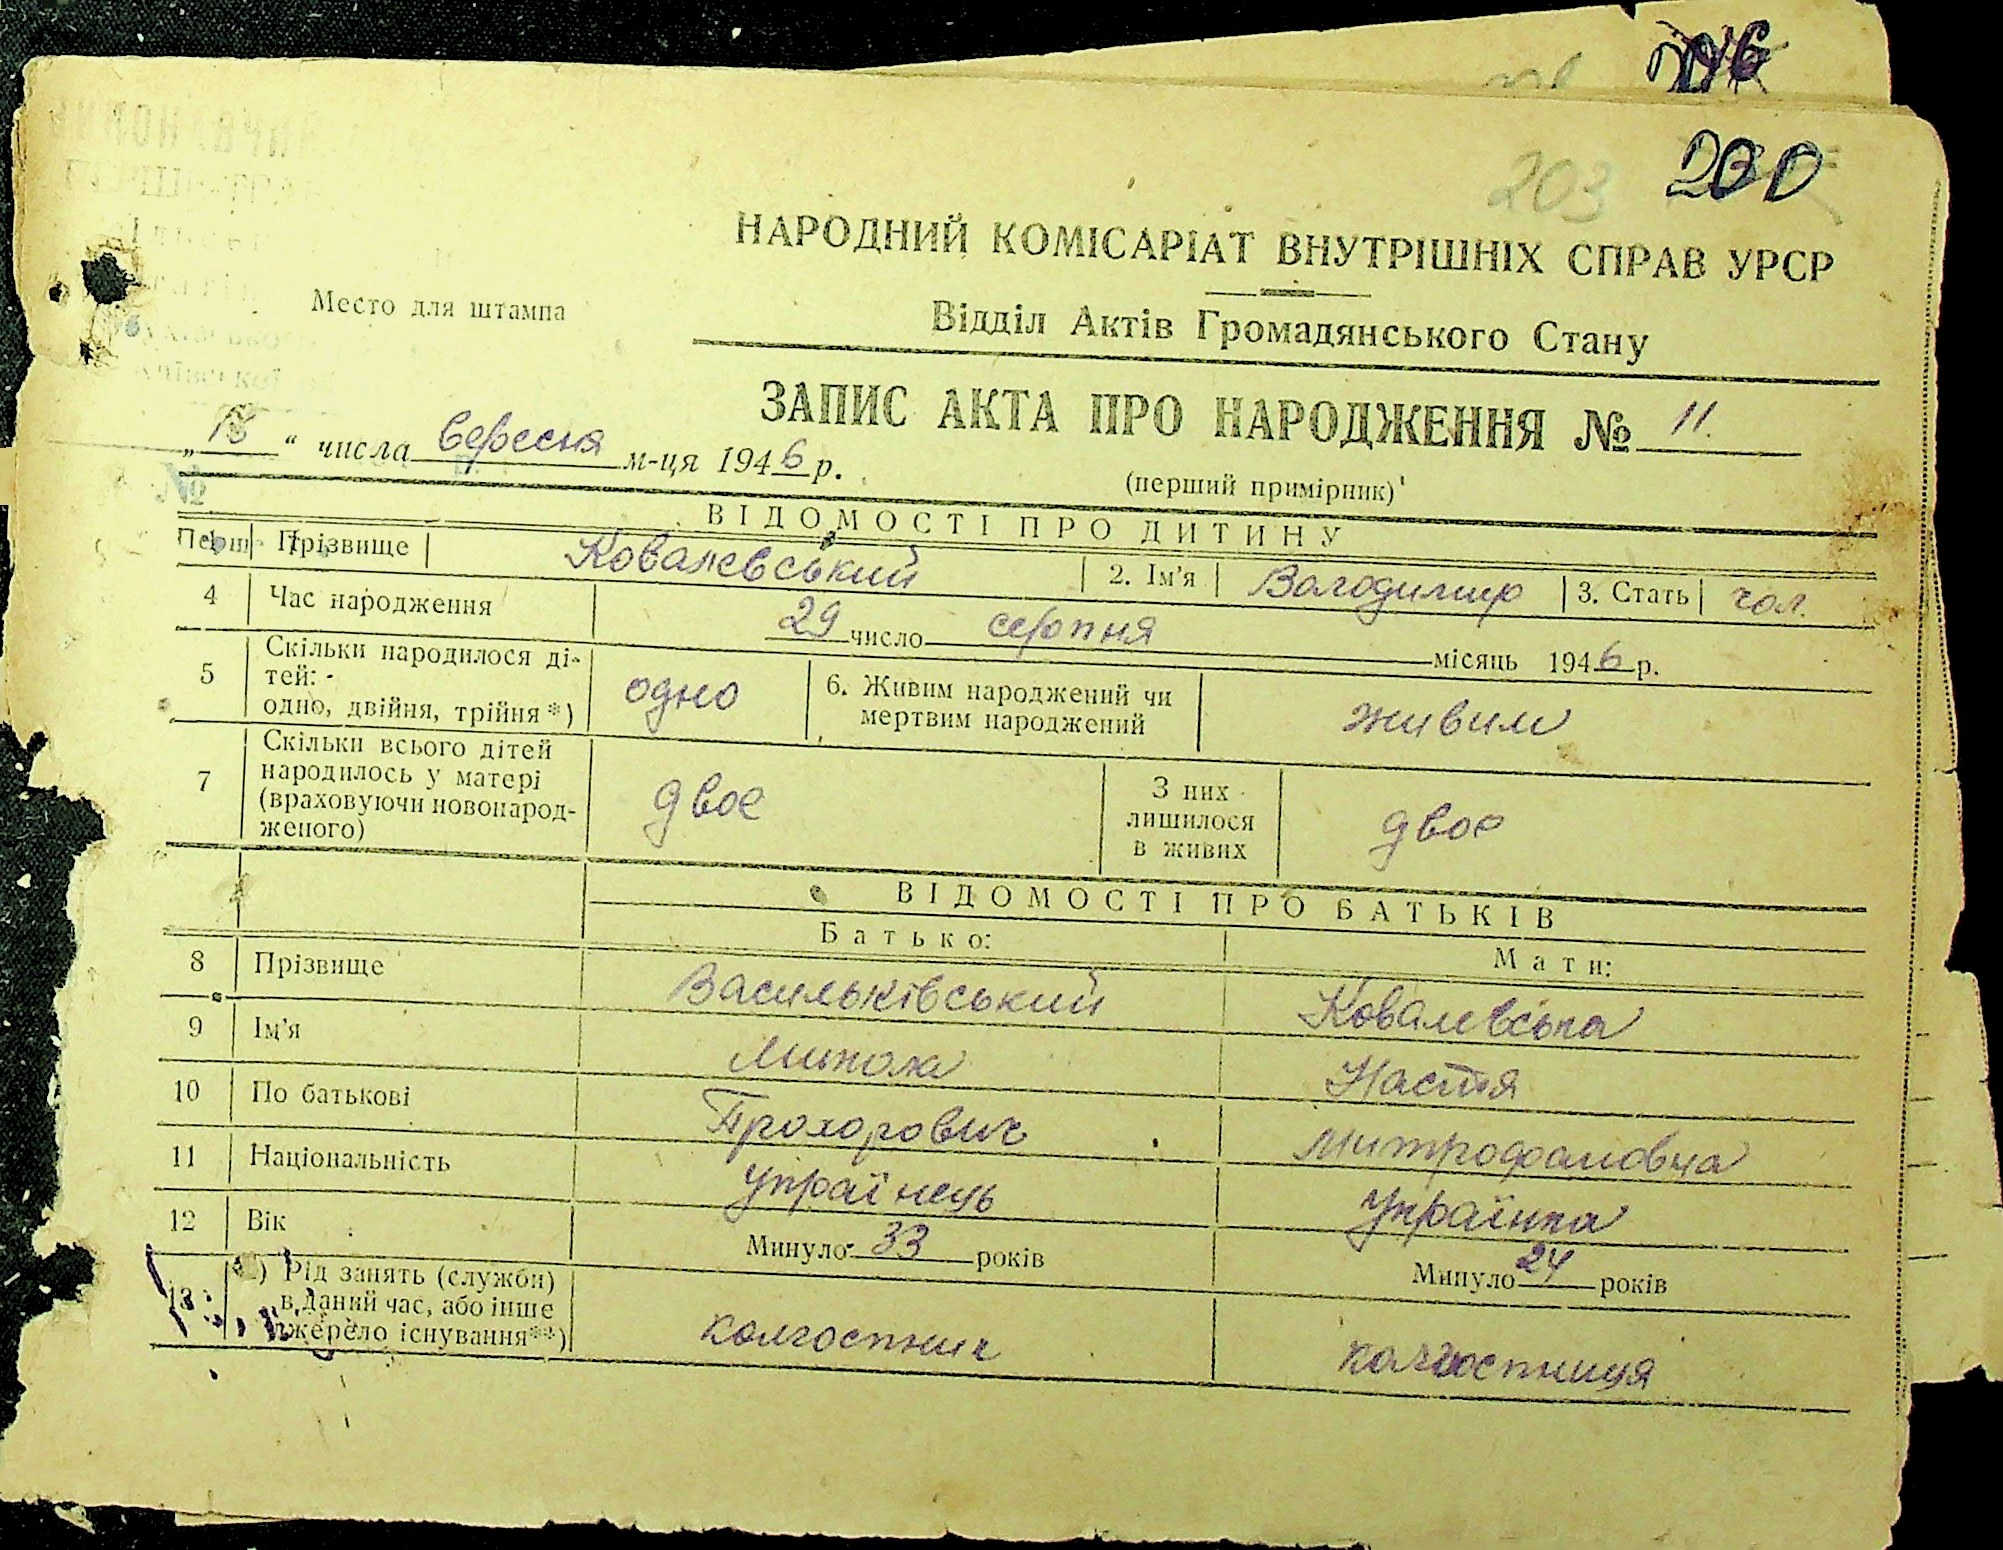 203 200
НАРОДНИЙ КОМІСАРІАТ ВНУТРІШНІХ СПРАВ УРСР
Место для штампа
Відділ Актів Громадянського Стану
ЗАПИС АКТА ПРО НАРОДЖЕННЯ № 11.
„18“ числа вересня м-ця 1946 р.
(перший примірник)
№
ВІДОМОСТІ ПРО ДИТИНУ
Прізвище Ковалевський 2. Ім'я Володимир 3. Стать чол.
4 Час народження 29 число серпня місяць 1946 р.
5 Скільки народилося ді-
тей:
одно, двійня, трійня*) одно 6. Живим народжений чи
мертвим народжений живим
7 Скільки всього дітей
народилось у матері
(враховуючи новонарод-
женого) двоє З них
лишилося
в живих двоє
ВІДОМОСТІ ПРО БАТЬКІВ
Батько: Мати:
8 Прізвище Васильківський Ковалевська
9 Ім'я Микола Настя
10 По батькові Прохорович Митрофановна
11 Національність українець Українка
12 Вік Минуло 33 років Минуло 24 років
13 Рід занять (служби)
в даний час, або інше
джерело існування**) колгоспник колгоспниця